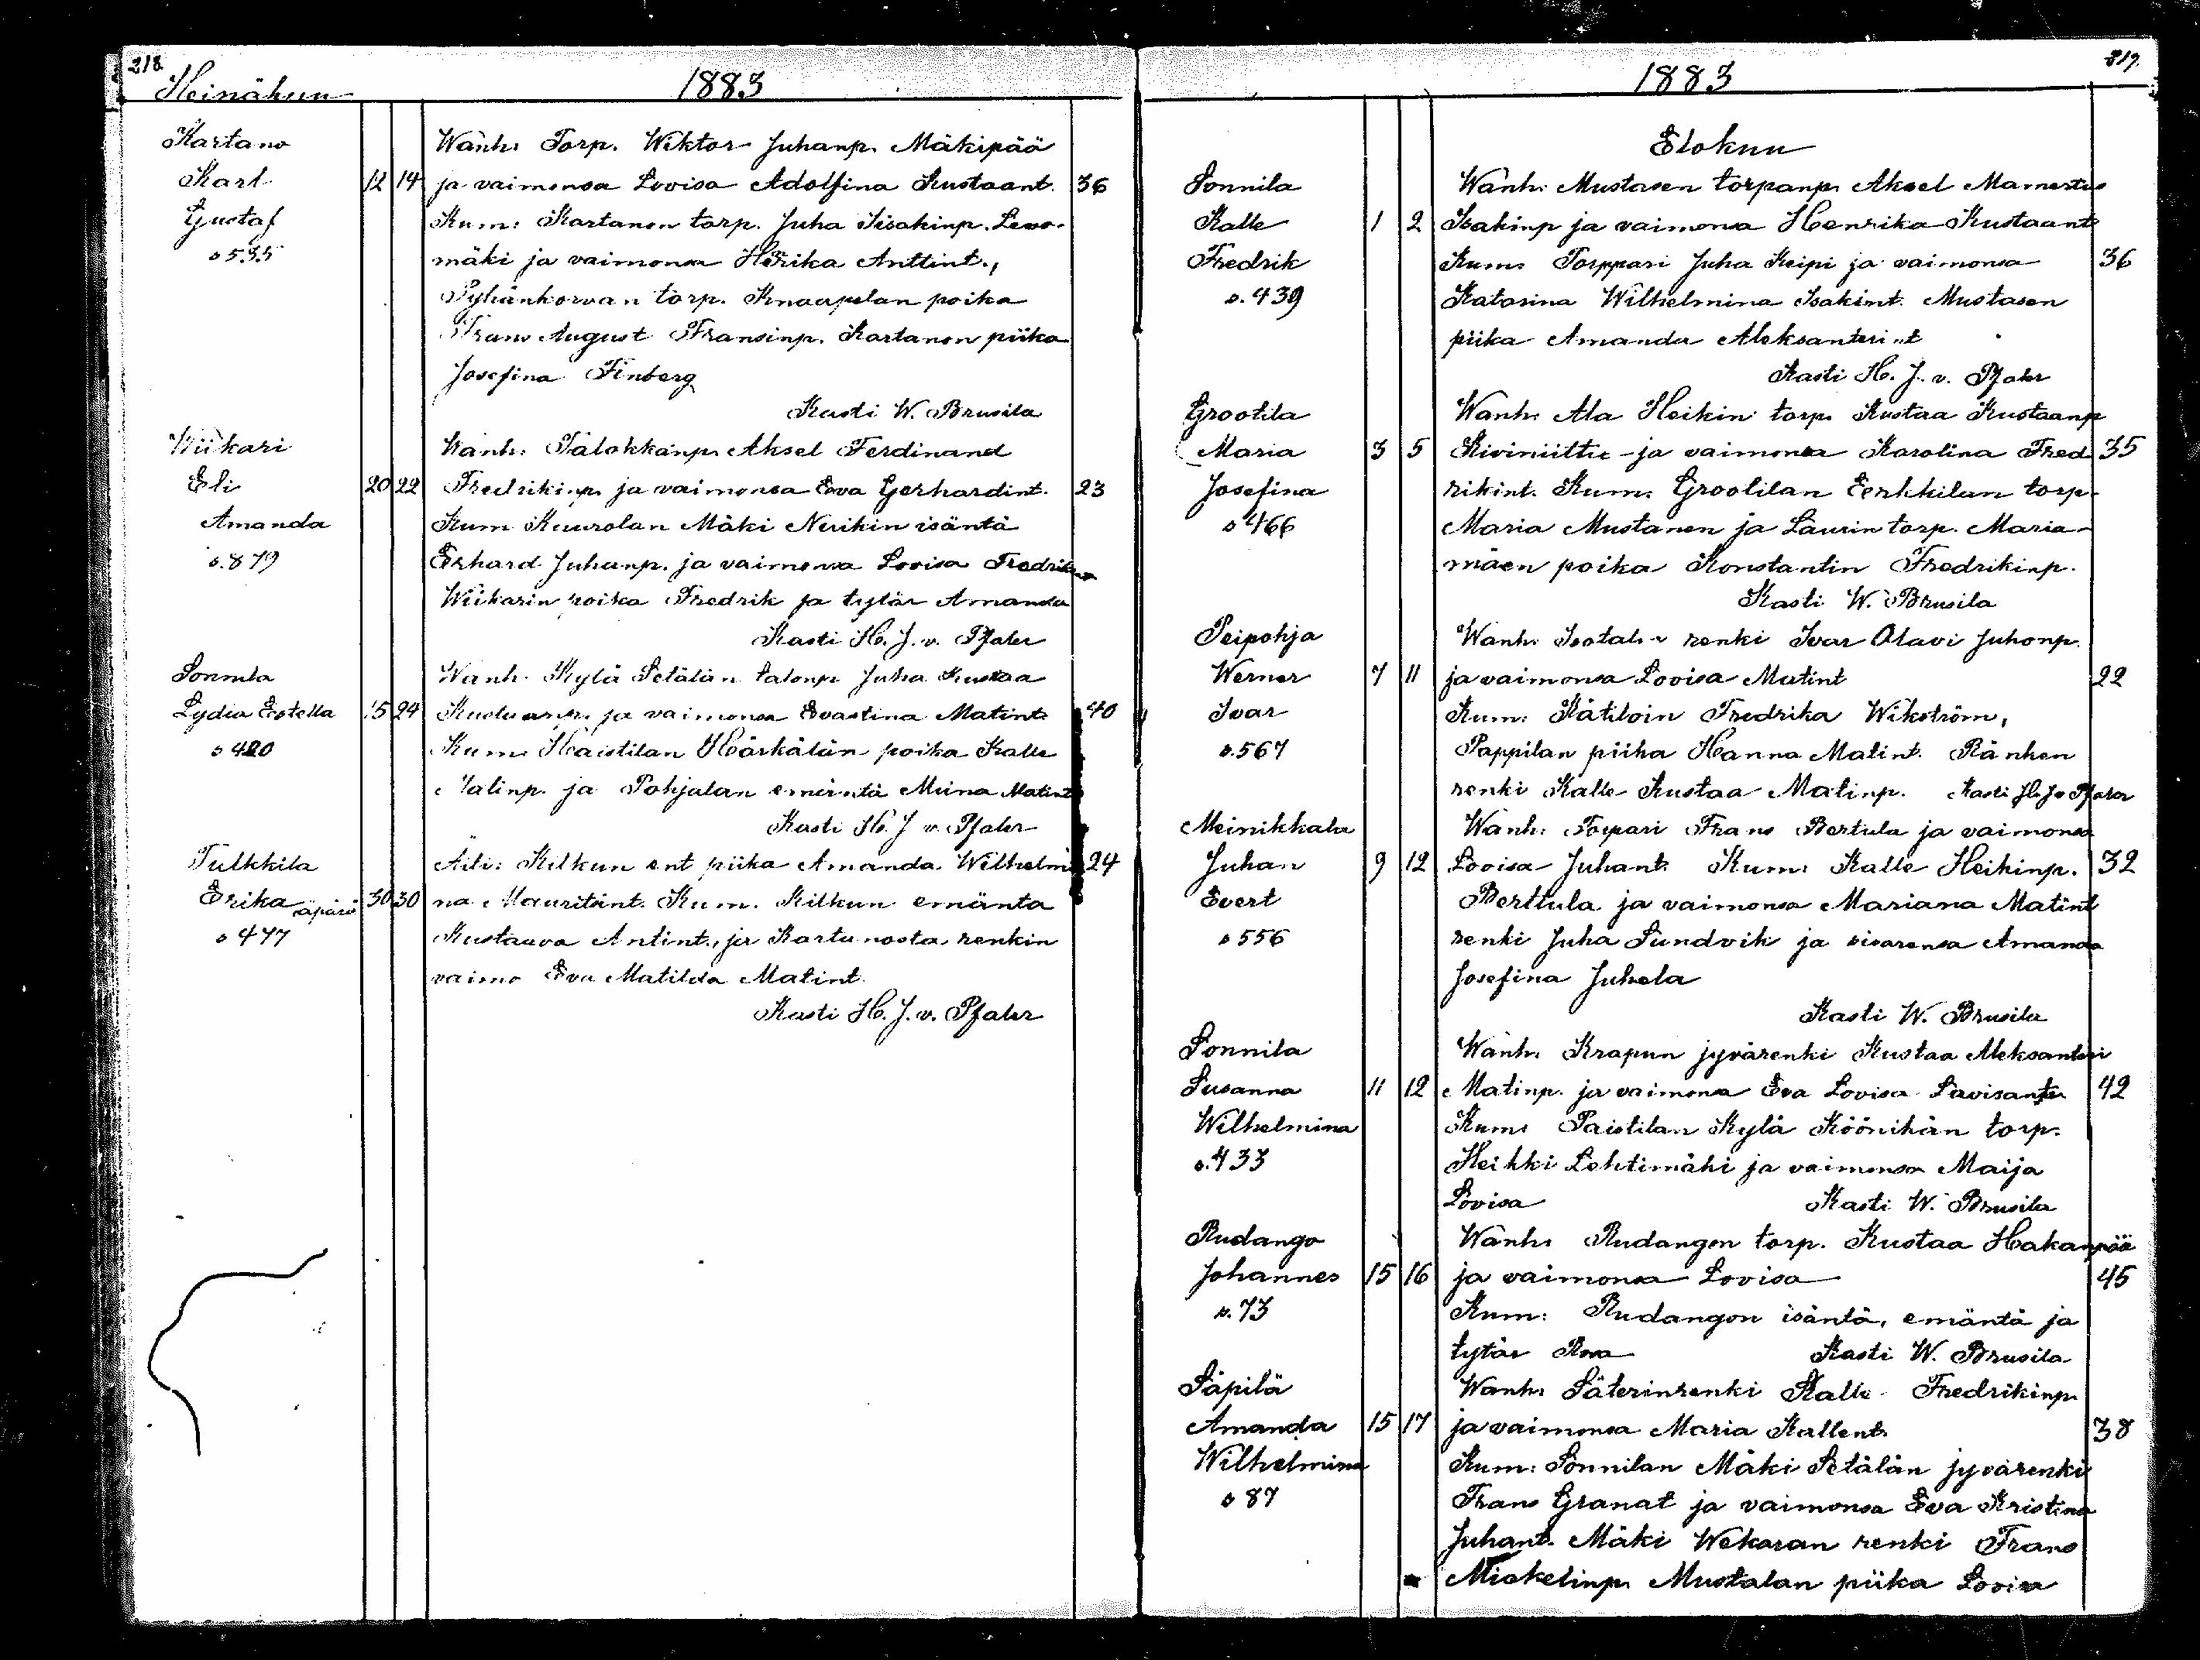 218.
Heinäkuu
1883
Kartano
Wanh: Torp. Wiktor Juhanp. Mäkipää
Karl 12 14 ja vaimonsa Lovisa Adolfina Kustaant. 36
Gustaf
Kum: Kartanon torp. Juha Iisakinp. Levo-
s 535
mäki ja vaimonsa Hrika Anttint.,
Pyhänkorvan torp. Knaapilan poika
Frans August Fransinp. Kartanon piika
Josefina Finberg
Kasti W. Brusila
Wiikari
Wanh: Talokkanp. Aksel Ferdinand
Eli 20 22 Fredrikinp. ja vaimonsa Eva Gerhardint. 23
Amanda
Kum Kuurolan Mäki Nerikin isäntä
s. 879
Erhard Juhanp. ja vaimonsa Lovisa
Wiikarin poika Fredrik ja tytär Amanda
Kasti H. J. v. Pfaler
Sonnila
Wanh. Kylä Setälän talonp Juha Kustaa
Lydia Estella 15 24 Kustaanp. ja vaimonsa Evastina Matint. 40
s 420
Kum. Haistilan Härkälän poika Kalle
Matinp. ja Pohjalan emäntä Miina Matint
Kasti H. J. v. Pfaler
Tulkkila
Äiti: Kilkun ent piika Amanda Wilhelmi 24
Erika äpärä 30 30 na Mauritsint. Kum. Kilkun emäntä
s 477
Kustaava Antint., ja Kartanosta renkin
vaimo Eva Matilda Matint.
Kasti H. J. v. Pfaler
219.
1883
Elokuu
Sonnila
Wanh: Mustasen torpanp. Aksel Mamertus
Kalle 1 2 Isakinp ja vaimonsa Henrika Kustaant
Fredrik
Kum: Torppari Juha Keipi ja vaimonsa 36
s. 439
Katarina Wilhelmina Isakint. Mustasen
piika Amanda Aleksanterint
Kasti H. J. v. Pfaler
Grootila
Wanh: Ala Heikin torp. Kustaa Kustaanp
Maria 3 5 Kiviniittu ja vaimonsa Karolina Fred 35
Josefina
rikint. Kum. Grootilan Eerkkilan torp.
s 466
Maria Mustanen ja Laurin torp. Maria-
mäen poika Konstantin Fredrikinp.
Kasti W. Brusila
Peipohja
Wanh: Isotalon renki Ivar Olavi Juhonp.
Werner 7 11 ja vaimonsa Lovisa Matint 22
Ivar
Kum: Kätiloin Fredrika Wikström,
s. 567
Pappilan piika Hanna Matint. Ränken
renki Kalle Kustaa Matinp. Kasti H. J. v Pfaler
Meinikkala
Wanh: Torpari Frans Bertula ja vaimonsa
Juhan 9 12 Lovisa Juhant. Kum: Kalle Heikinp. 32
Evert
Berttula ja vaimonsa Mariana Matint
s 556
renki Juha Sundvik ja sisarensa Amanda
Josefina Juhela
Kasti W. Brusila
Sonnila
Wanh: Krapun jyvärenki Kustaa Aleksanteri
Susanna 11 12 Matinp. ja vaimonsa Eva Lovisa 42
Wilhelmina
Kum: Paistilan Kylä Köönikän torp.
s. 433
Heikki Lehtimäki ja vaimonsa Maija
Lovisa Kasti W. Brusila
Rudango
Wanh: Rudangon torp. Kustaa Hakanpää
Johannes 15 16 ja vaimonsa Lovisa 45
s. 73
Kum: Rudangon isäntä, emäntä ja
tytär Roosa Kasti W. Brusila
Säpilä
Wanh: Säterinrenki Kalle Fredrikinp.
Amanda 15 17 ja vaimonsa Maria Kallent. 38
Wilhelmina
Kum: Sonnilan Mäki Setälän jyvärenki
s 87
Frans Granat ja vaimonsa Eva Kristina
Juhant. Mäki Wekaran renki Frans
Mickelinp. Mustalan piika Lovisa